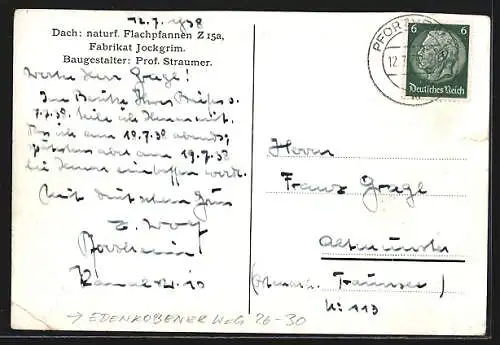 12.7.1938
Dach: naturf. Flachpfannen Z 15a,
Fabrikat Jockgrim.
Baugestalter: Prof. Straumer.
Werter Herr Gragl!
Im Besitze Ihres Briefes v.
7.7.38. teile ich Ihnen mit,
das ich am 18.7.38 abends,
spätestens aber am 19.7.38
bei Ihnen eintreffen werde.
Mit deutschem Gruss
Pforzheim
→ EDENKOBENER WEG 26-30
PFORZHEIM
12.7
6 6
Deutsches Reich
Herrn
Franz Gragl
Altmünster
Traunsee)
Nr. 113